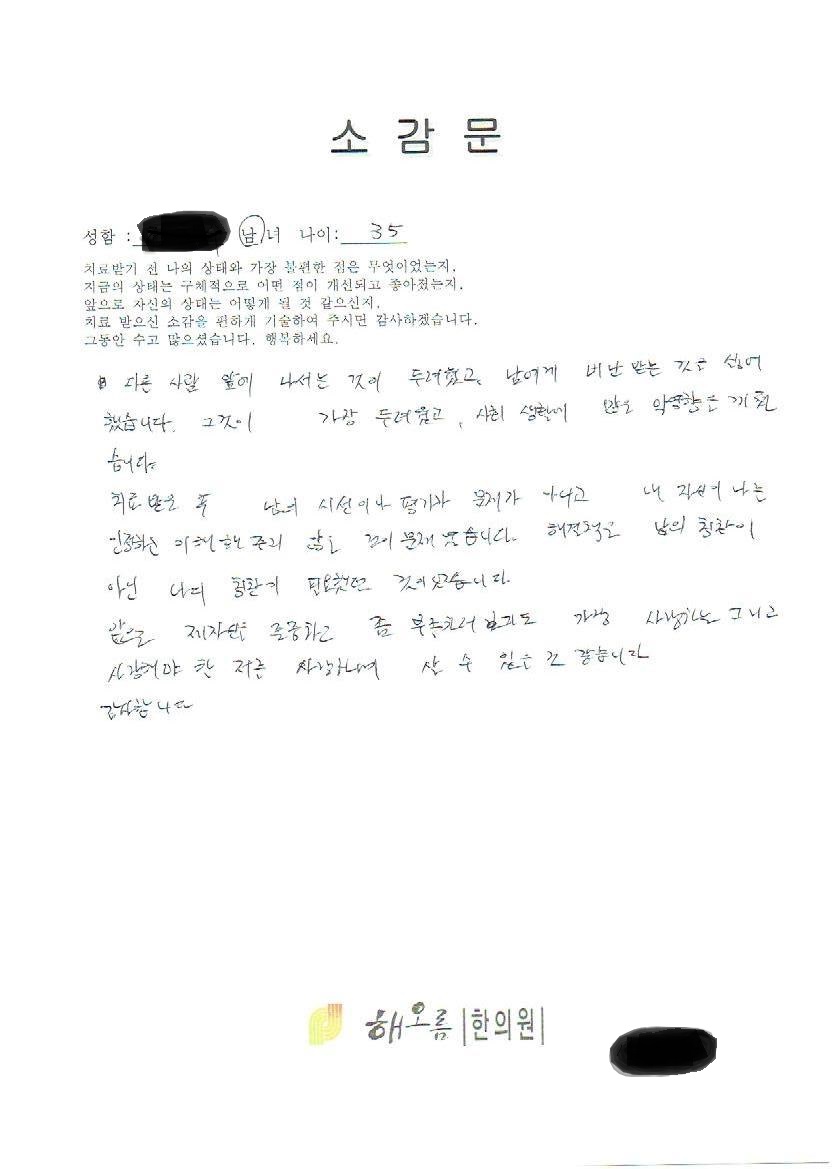 소 감 문
성함 : 남 녀 나이: 35
치료받기 전 나의 상태와 가장 불편한 점은 무엇이었는지.
지금의 상태는 구체적으로 어떤 점이 개선되고 좋아졌는지.
앞으로 자신의 상태는 어떻게 될 것 같으신지.
치료 받으신 소감을 편하게 기술하여 주시면 감사하겠습니다.
그동안 수고 많으셨습니다. 행복하세요.
다른 사람 앞에 나서는 것이 두려웠고, 남에게 비난 받는 것을 싫어
했습니다. 그것이 가장 두려웠고, 사회 생활에 많은 악영향을 끼쳤
습니다.
치료 받은 후 남의 시선이나 평가가 문제가 아니고 내 자신이 나를
인정하고 이해해 주지 않는 것이 문제였습니다. 해결책은 남의 칭찬이
아닌 나의 칭찬이 필요했던 것이었습니다.
앞으로 제자신을 존중하고 좀 부족하더라도 가장 사랑하는 그리고
사랑해야 할 저를 사랑하며 살 수 있을 것 같습니다
감사합니다
해오름 한의원